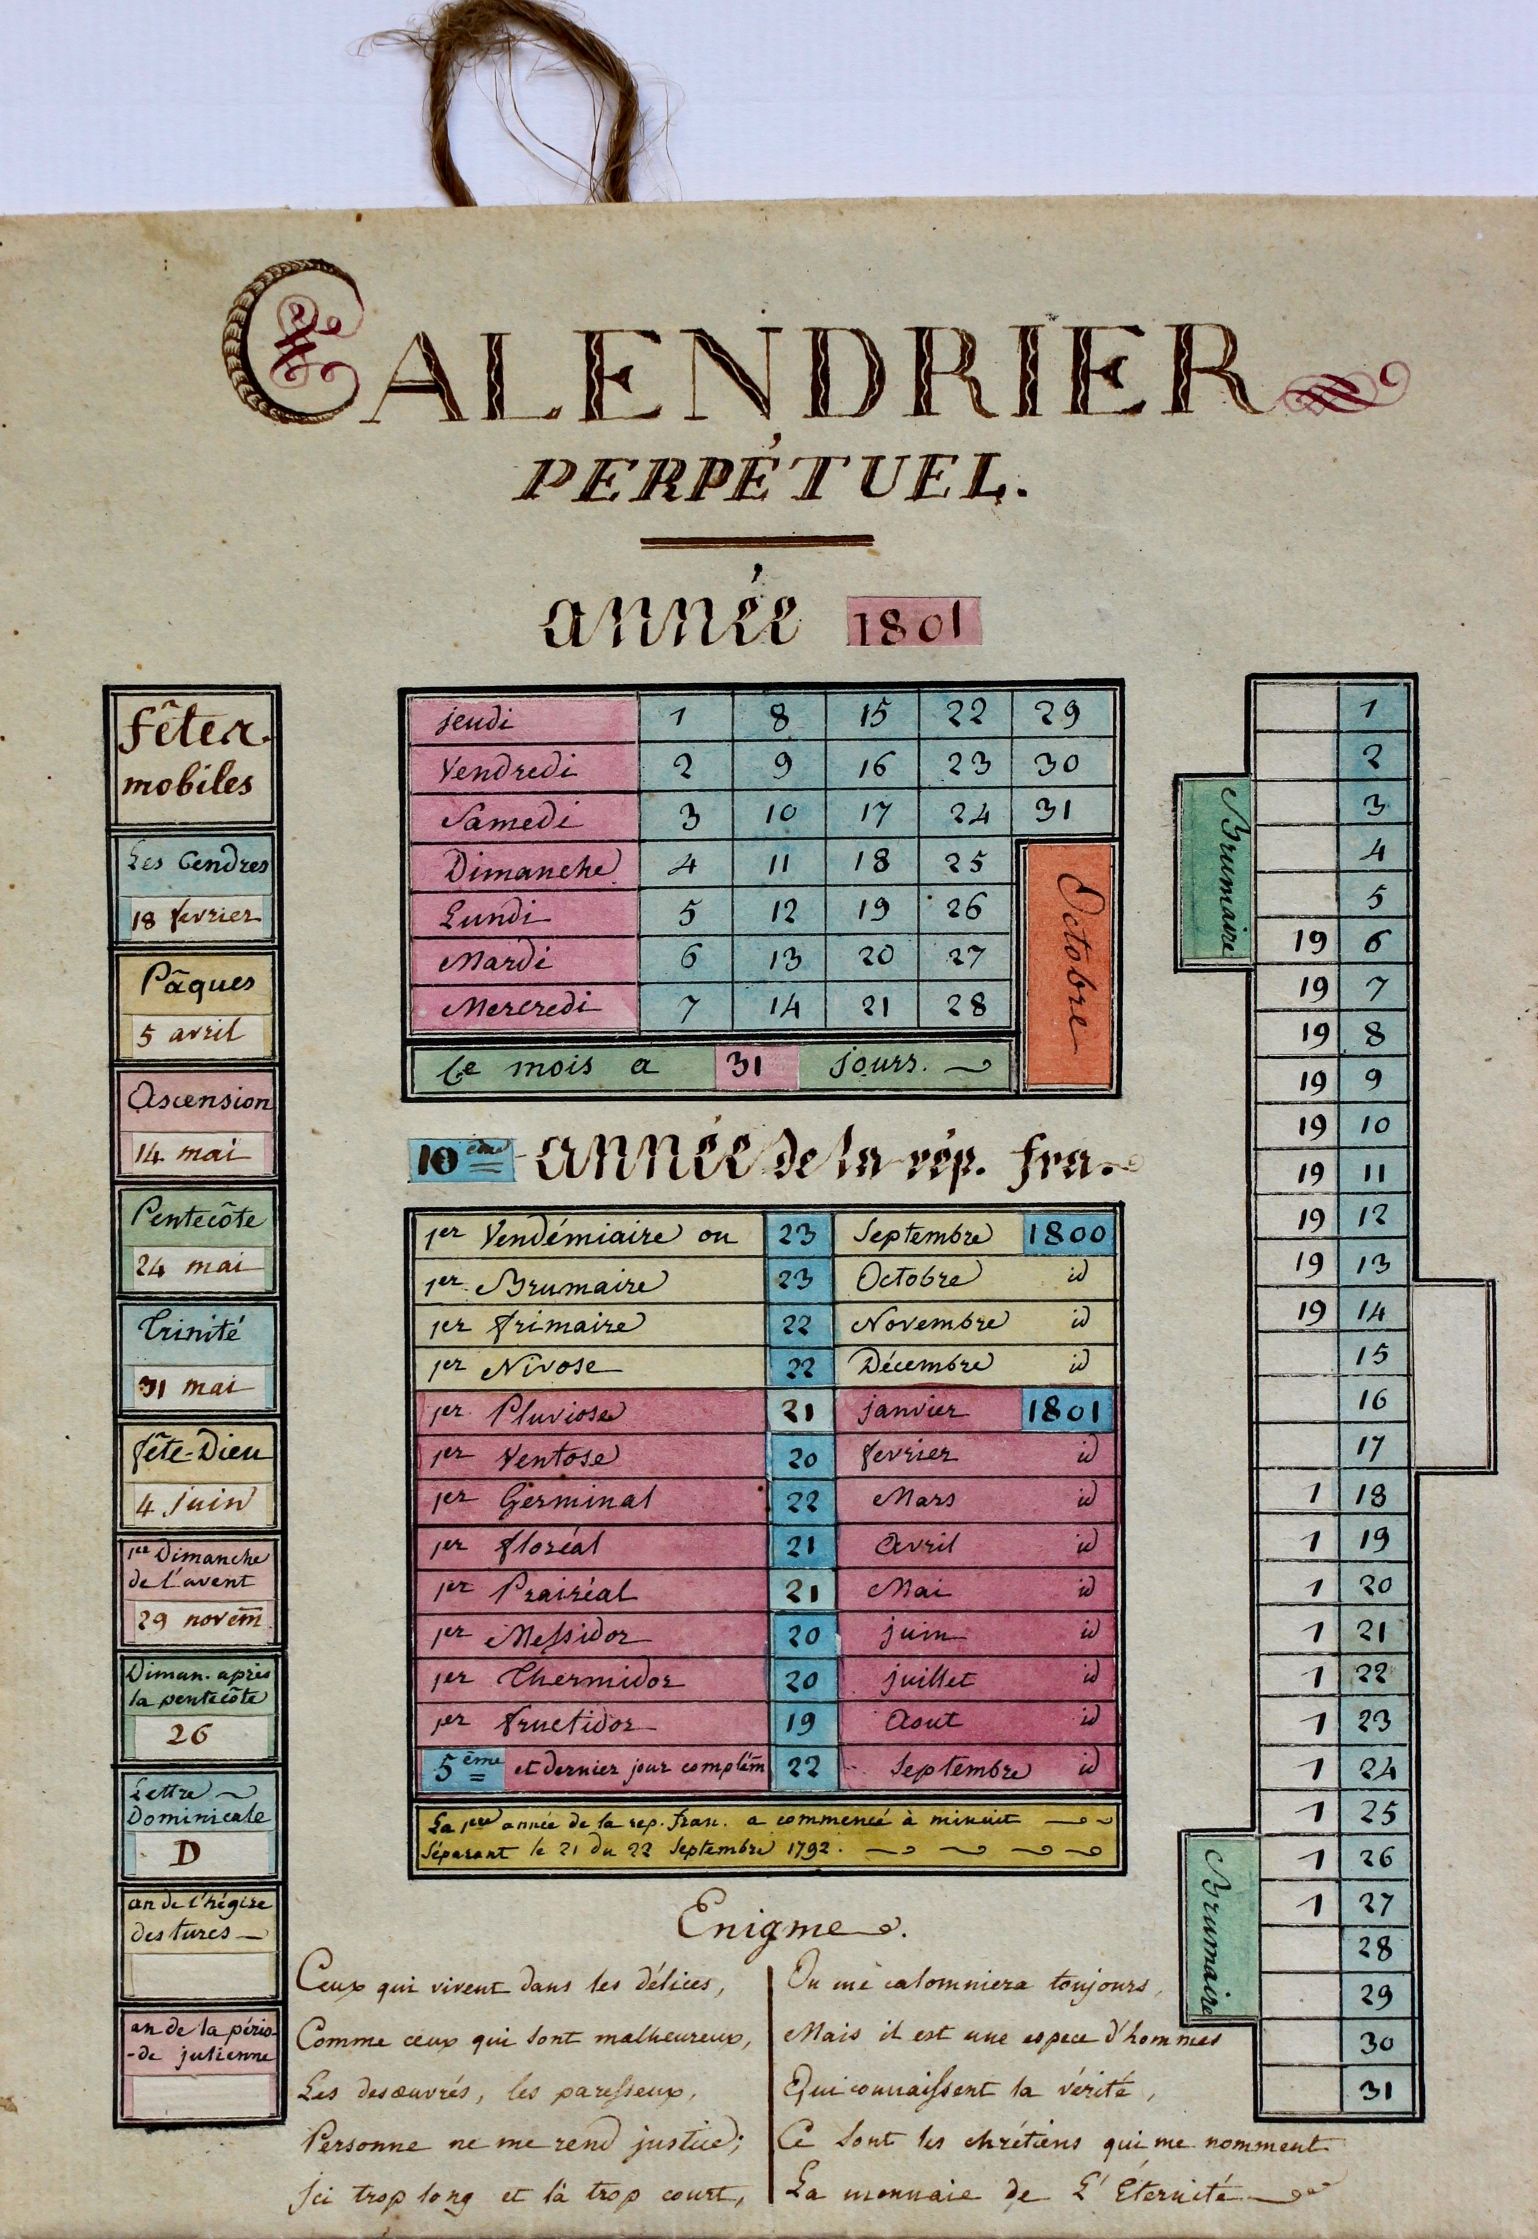 CALENDRIER
PERPÉTUEL.
année 1801
Fêtes mobiles
Les Cendres
18 fevrier
Pâques
5 avril
Ascension
14 mai
Pentecôte
24 mai
Trinité
31 mai
fête-Dieu
4 juin
1er Dimanche
de l'avent
29 novem
Diman. après
la pentecôte
26
Lettre
Dominicale
D
an de l'hégire
des turcs
an de la pério-
-de julienne
jeudi 1 8 15 22 29
Vendredi 2 9 16 23 30
Samedi 3 10 17 24 31
Dimanche 4 11 18 25
Lundi 5 12 19 26
Mardi 6 13 20 27
Mercredi 7 14 21 28
Octobre
Ce mois a 31 jours.
10ème année de la rép. fra.
1er Vendémiaire ou 23 Septembre 1800
1er Brumaire 23 Octobre id
1er frimaire 22 Novembre id
1er Nivose 22 Décembre id
1er Pluviose 21 janvier 1801
1er Ventose 20 fevrier id
1er Germinal 22 Mars id
1er floréal 21 Avril id
1er Prairéal 21 Mai id
1er Messidor 20 juin id
1er Thermidor 20 juillet id
1er fructidor 19 Aout id
5ème et dernier jour complém 22 Septembre id
La 1ere année de la rep. fran. a commencé à minuit
Séparant le 21 du 22 Septembre 1792.
Brumaire
1
2
3
4
5
19 6
19 7
19 8
19 9
19 10
19 11
19 12
19 13
19 14
15
16
17
1 18
1 19
1 20
1 21
1 22
1 23
1 24
1 25
1 26
1 27
28
29
30
31
Brumaire
Enigme.
Ceux qui vivent dans les délices,
Comme ceux qui sont malheureux,
Les desœuvrés, les paresseux,
Personne ne me rend justice;
Ici trop long et là trop court,
On me calomniera toujours,
Mais il est une espece d'hommes
Qui connaissent la vérité,
Ce sont les chrétiens qui me nomment
La monnaie de L'Éternité